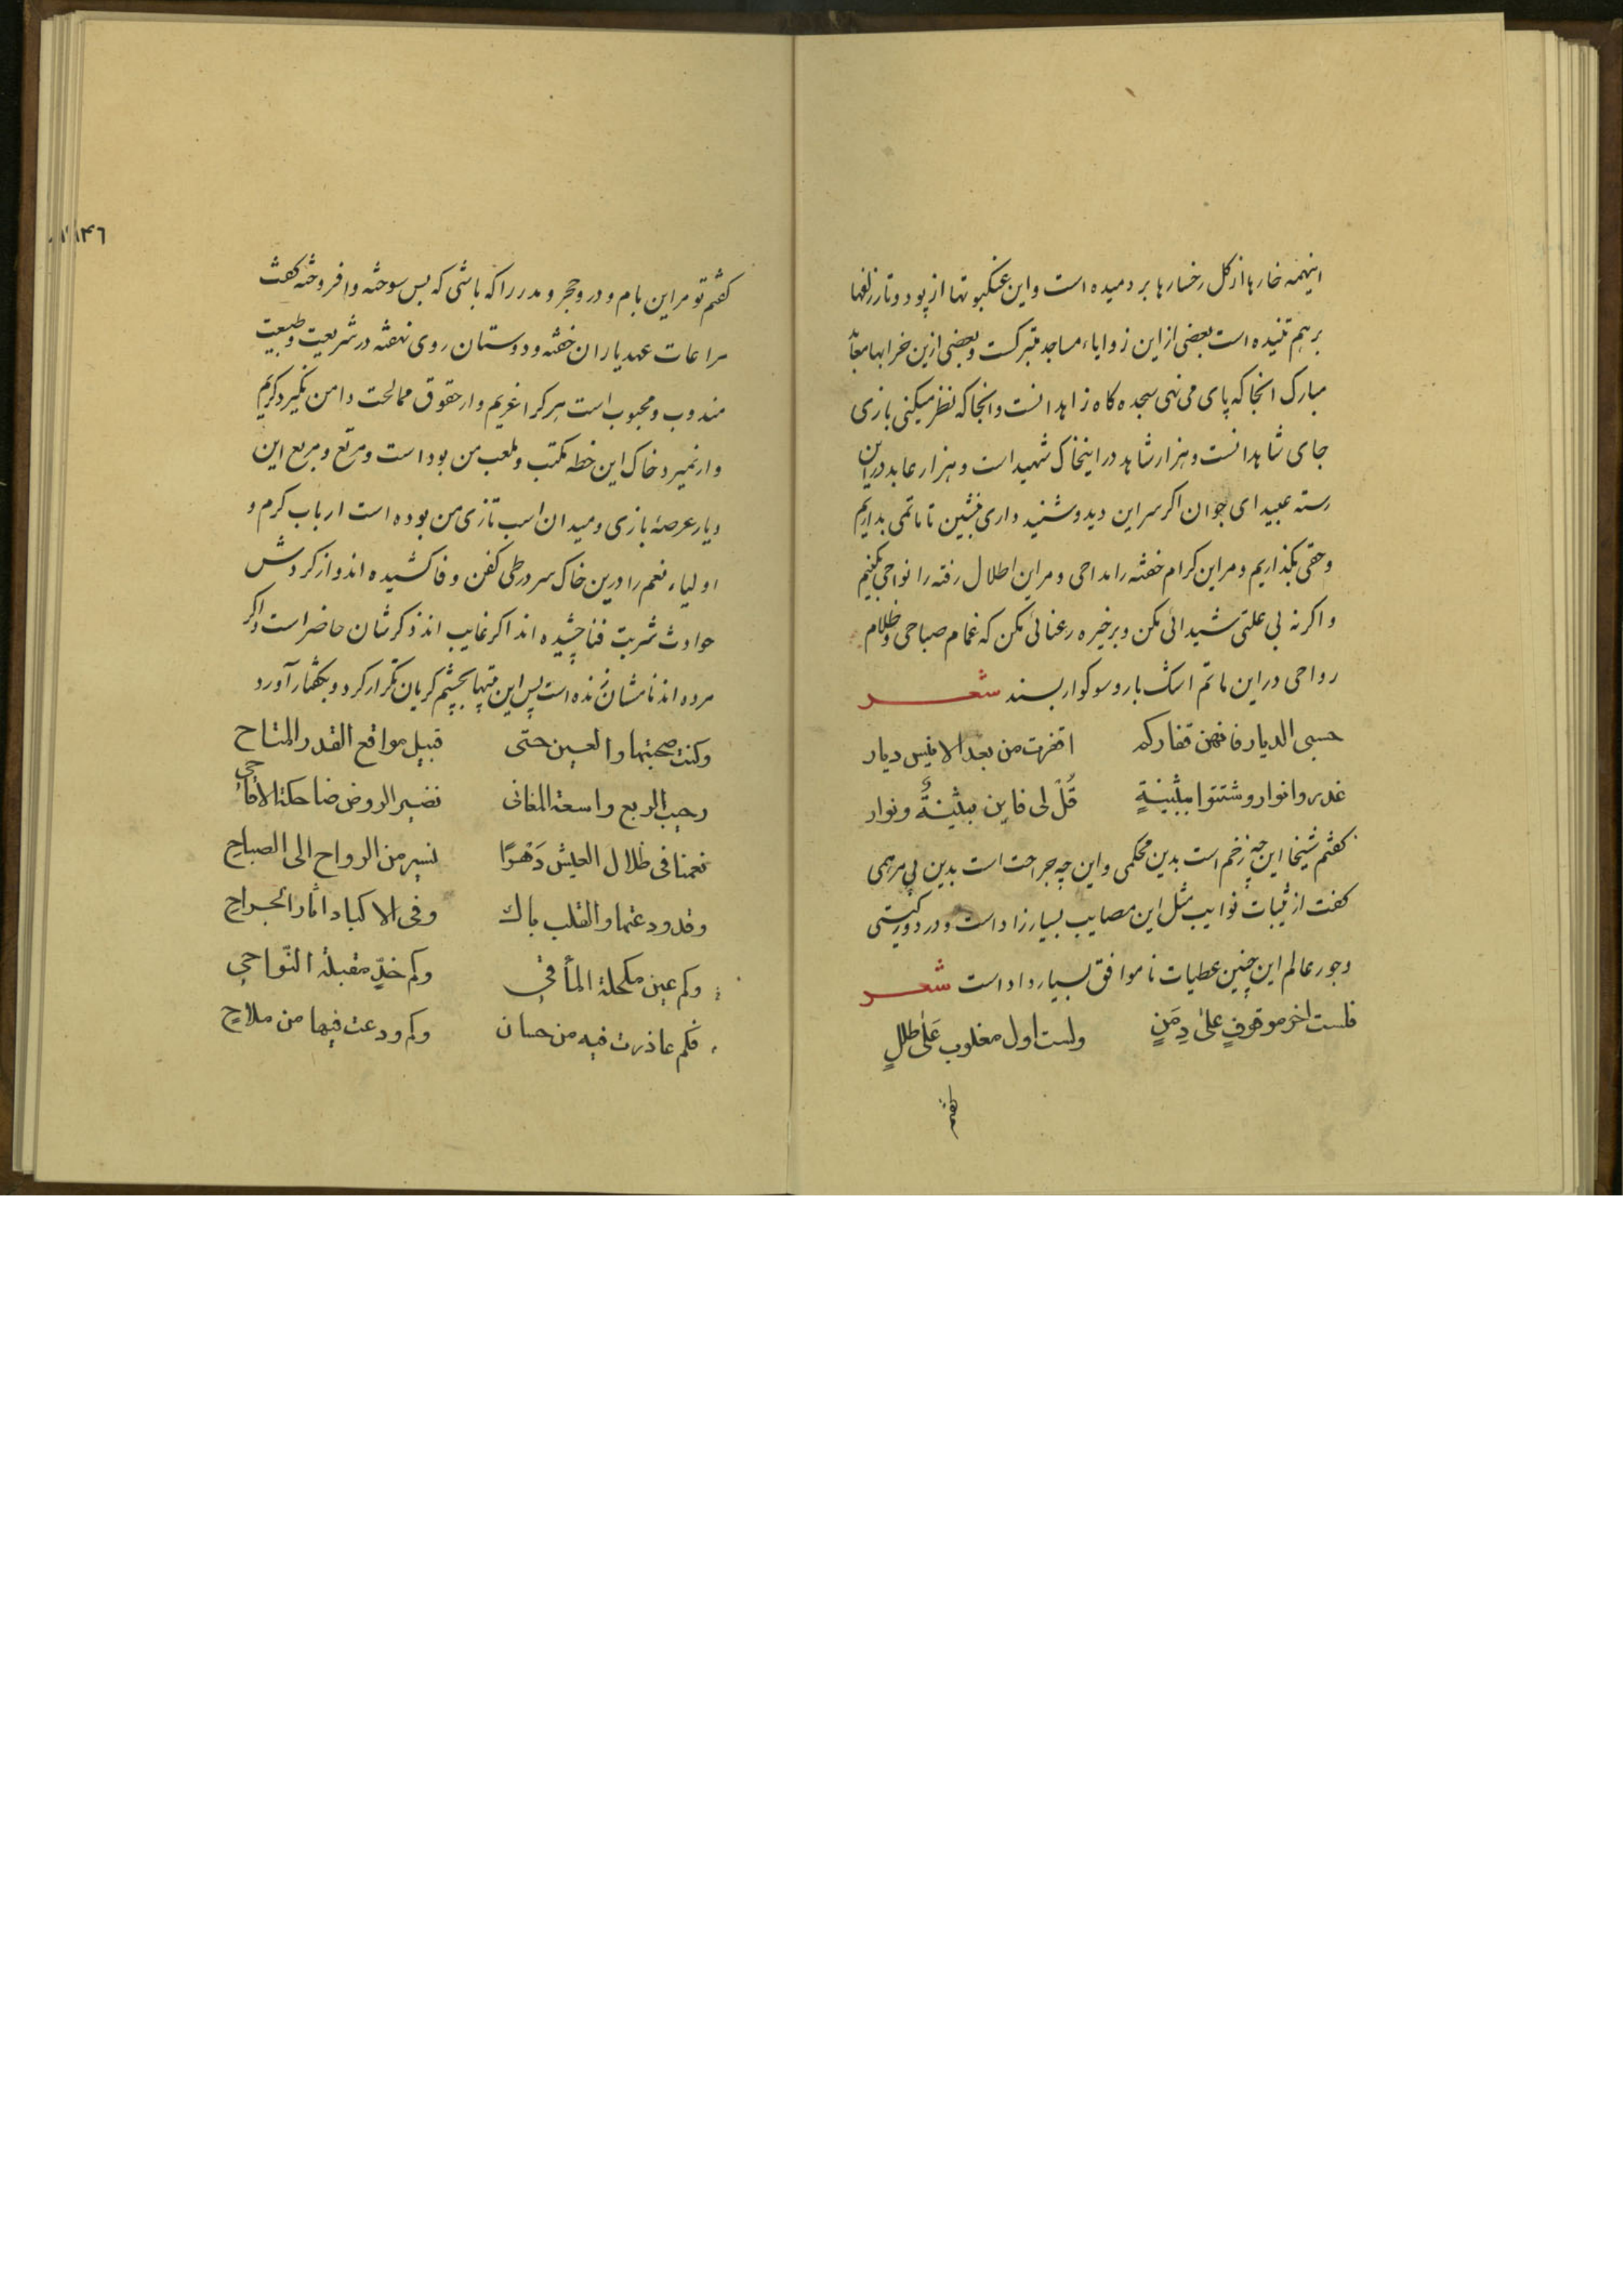 اینهمه خارها از کل رخسارها بر دمیده است و این عنکبوتها از پود و تار زلفها
بر هم تنیده است بعضی از این زوایاء مساجد متبرکست و بعضی ازین خرابها معابد
مبارک انجا که پای می نهی سجده کاه زاهدانست وانجا که نظر میکنی بازی
جای شاهدانست و هزار شاهد در اینخاک شهید است و هزار عابد در این
رسته عبید ای جوان اکر سر این دید و شنید داری بنشین تا ماتمی بداریم
و حقی بکذاریم و مر این کرام خفته را مداحی و مر این اطلال رفته را نواحی بکنیم
و اکر نه بی علتی شیدائی مکن و بر خیره رعنائی مکن که غمام صباحی و ظلام
رواحی در این ماتم اشک بار و سوکوار بسند شعر
حسبی الدیار فانهن قفارکم اقفرت من بعد الانیس دیار
غدروا نوار وشتتوا ببثینةٍ قُل لی فاین بثینةٌ ونوار
کفتم شیخا این چه زخم است بدین محکمی و این چه جراحت است بدین بی مرهمی
کفت از نوایب مثل این مصایب بسیار زاد است و در دور کیتی
و جور عالم این چنین عطیات نا موافق بسیار داد است شعر
فلست اخر موقوفٍ علیٰ دِمَنٍ ولست اول مغلوب عَلیٰ طللٍ
کفتم
۱۴۶
کفتم تو مر این بام و در و حجر و مدر را که باشی که بس سوخته وافروخته کفت
مراعات عهد یاران خفته و دوستان روی نهفته در شریعت و طبیعت
مندوب و محبوب است هر کرا غریم وار حقوق ممالحت دامن نکیرد کریم
وار نمیرد خاک این خطه مکتب و ملعب من بود است و مرتع و مربع این
دیار عرصهٔ بازی و میدان اسب تازی من بوده است ارباب کرم و
اولیاء نعم را درین خاک سر در طی کفن و فا کشیده اند و از کردش
حوادث شربت فنا چشیده اند اکر غایب اند ذکرشان حاضر است و اکر
مرده اند نامشان زنده است پس این بیتها بچشم کریان تکرار کرد و بکفتار آورد
وکنت صحبتها والعین حتی قبیل مواقع القدر المتاح
رحیب الربع واسعة المغانی نضیر الروض ضاحکة الاقاحی
نعمنا فی ظلال العیش دَهْرًا نسیر من الرواح الی الصباحِ
وقد ودعتها والقلب باك وفی الاکباد اثار الجراحِ
وکم عین مکحلة المأقی وکم خدٍّ مقبلة النّواحی
فکم غادرت فیه من حسان وکم ودعت فیها من ملاحٍ